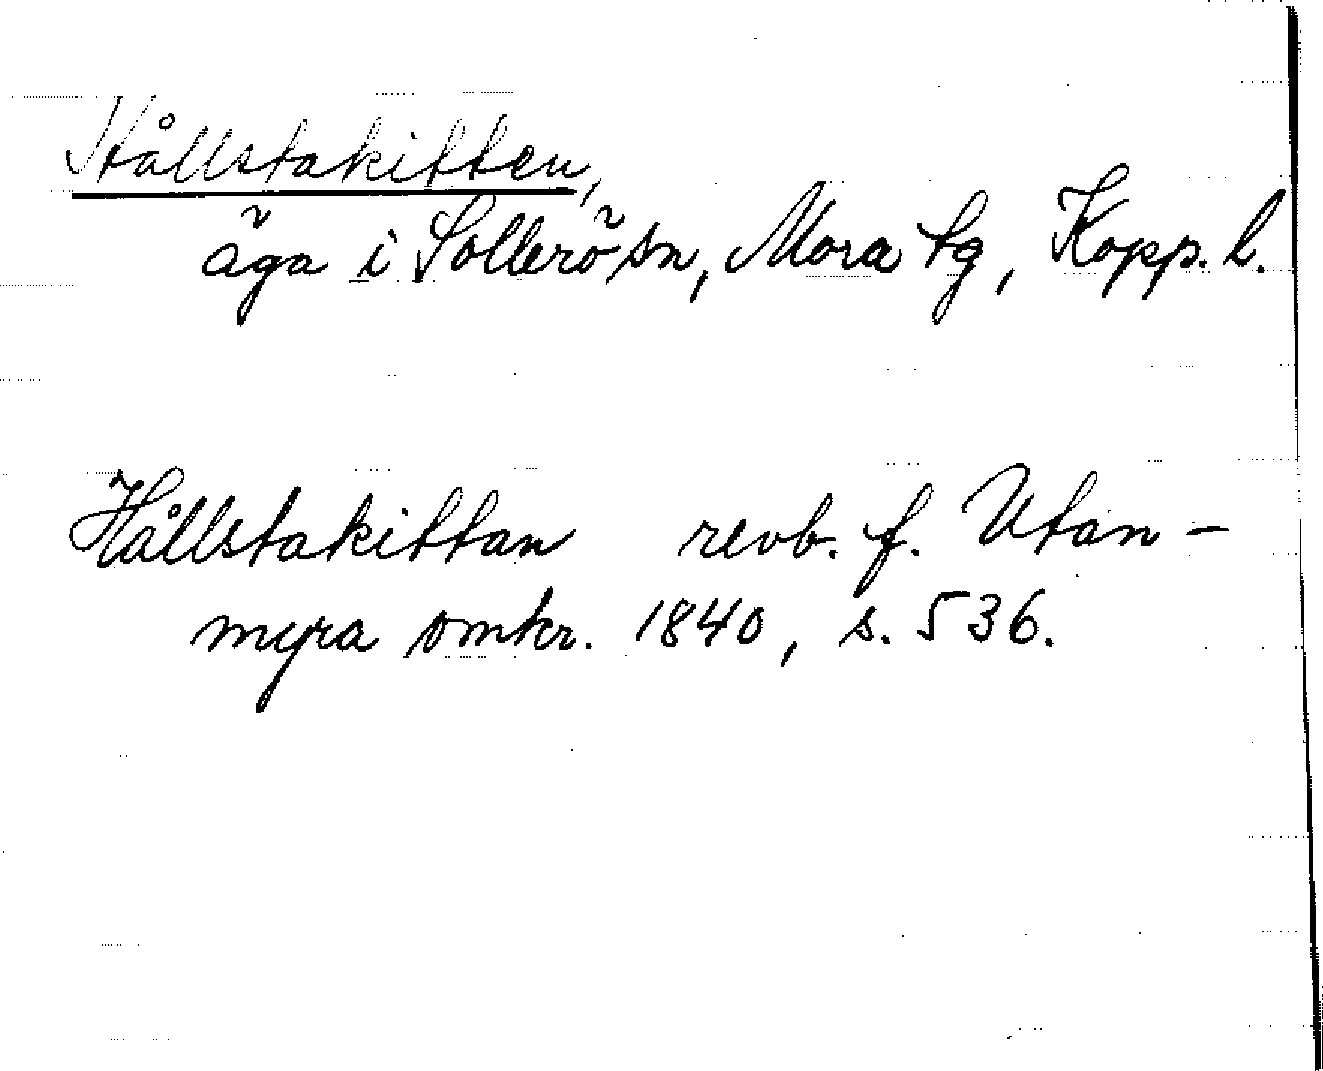 Hållstakitten,
äga i Sollerö sn, Mora tg, Kopp. l.
Hållstakittan revb. f. Utan-
myra omkr. 1840, s. 536.